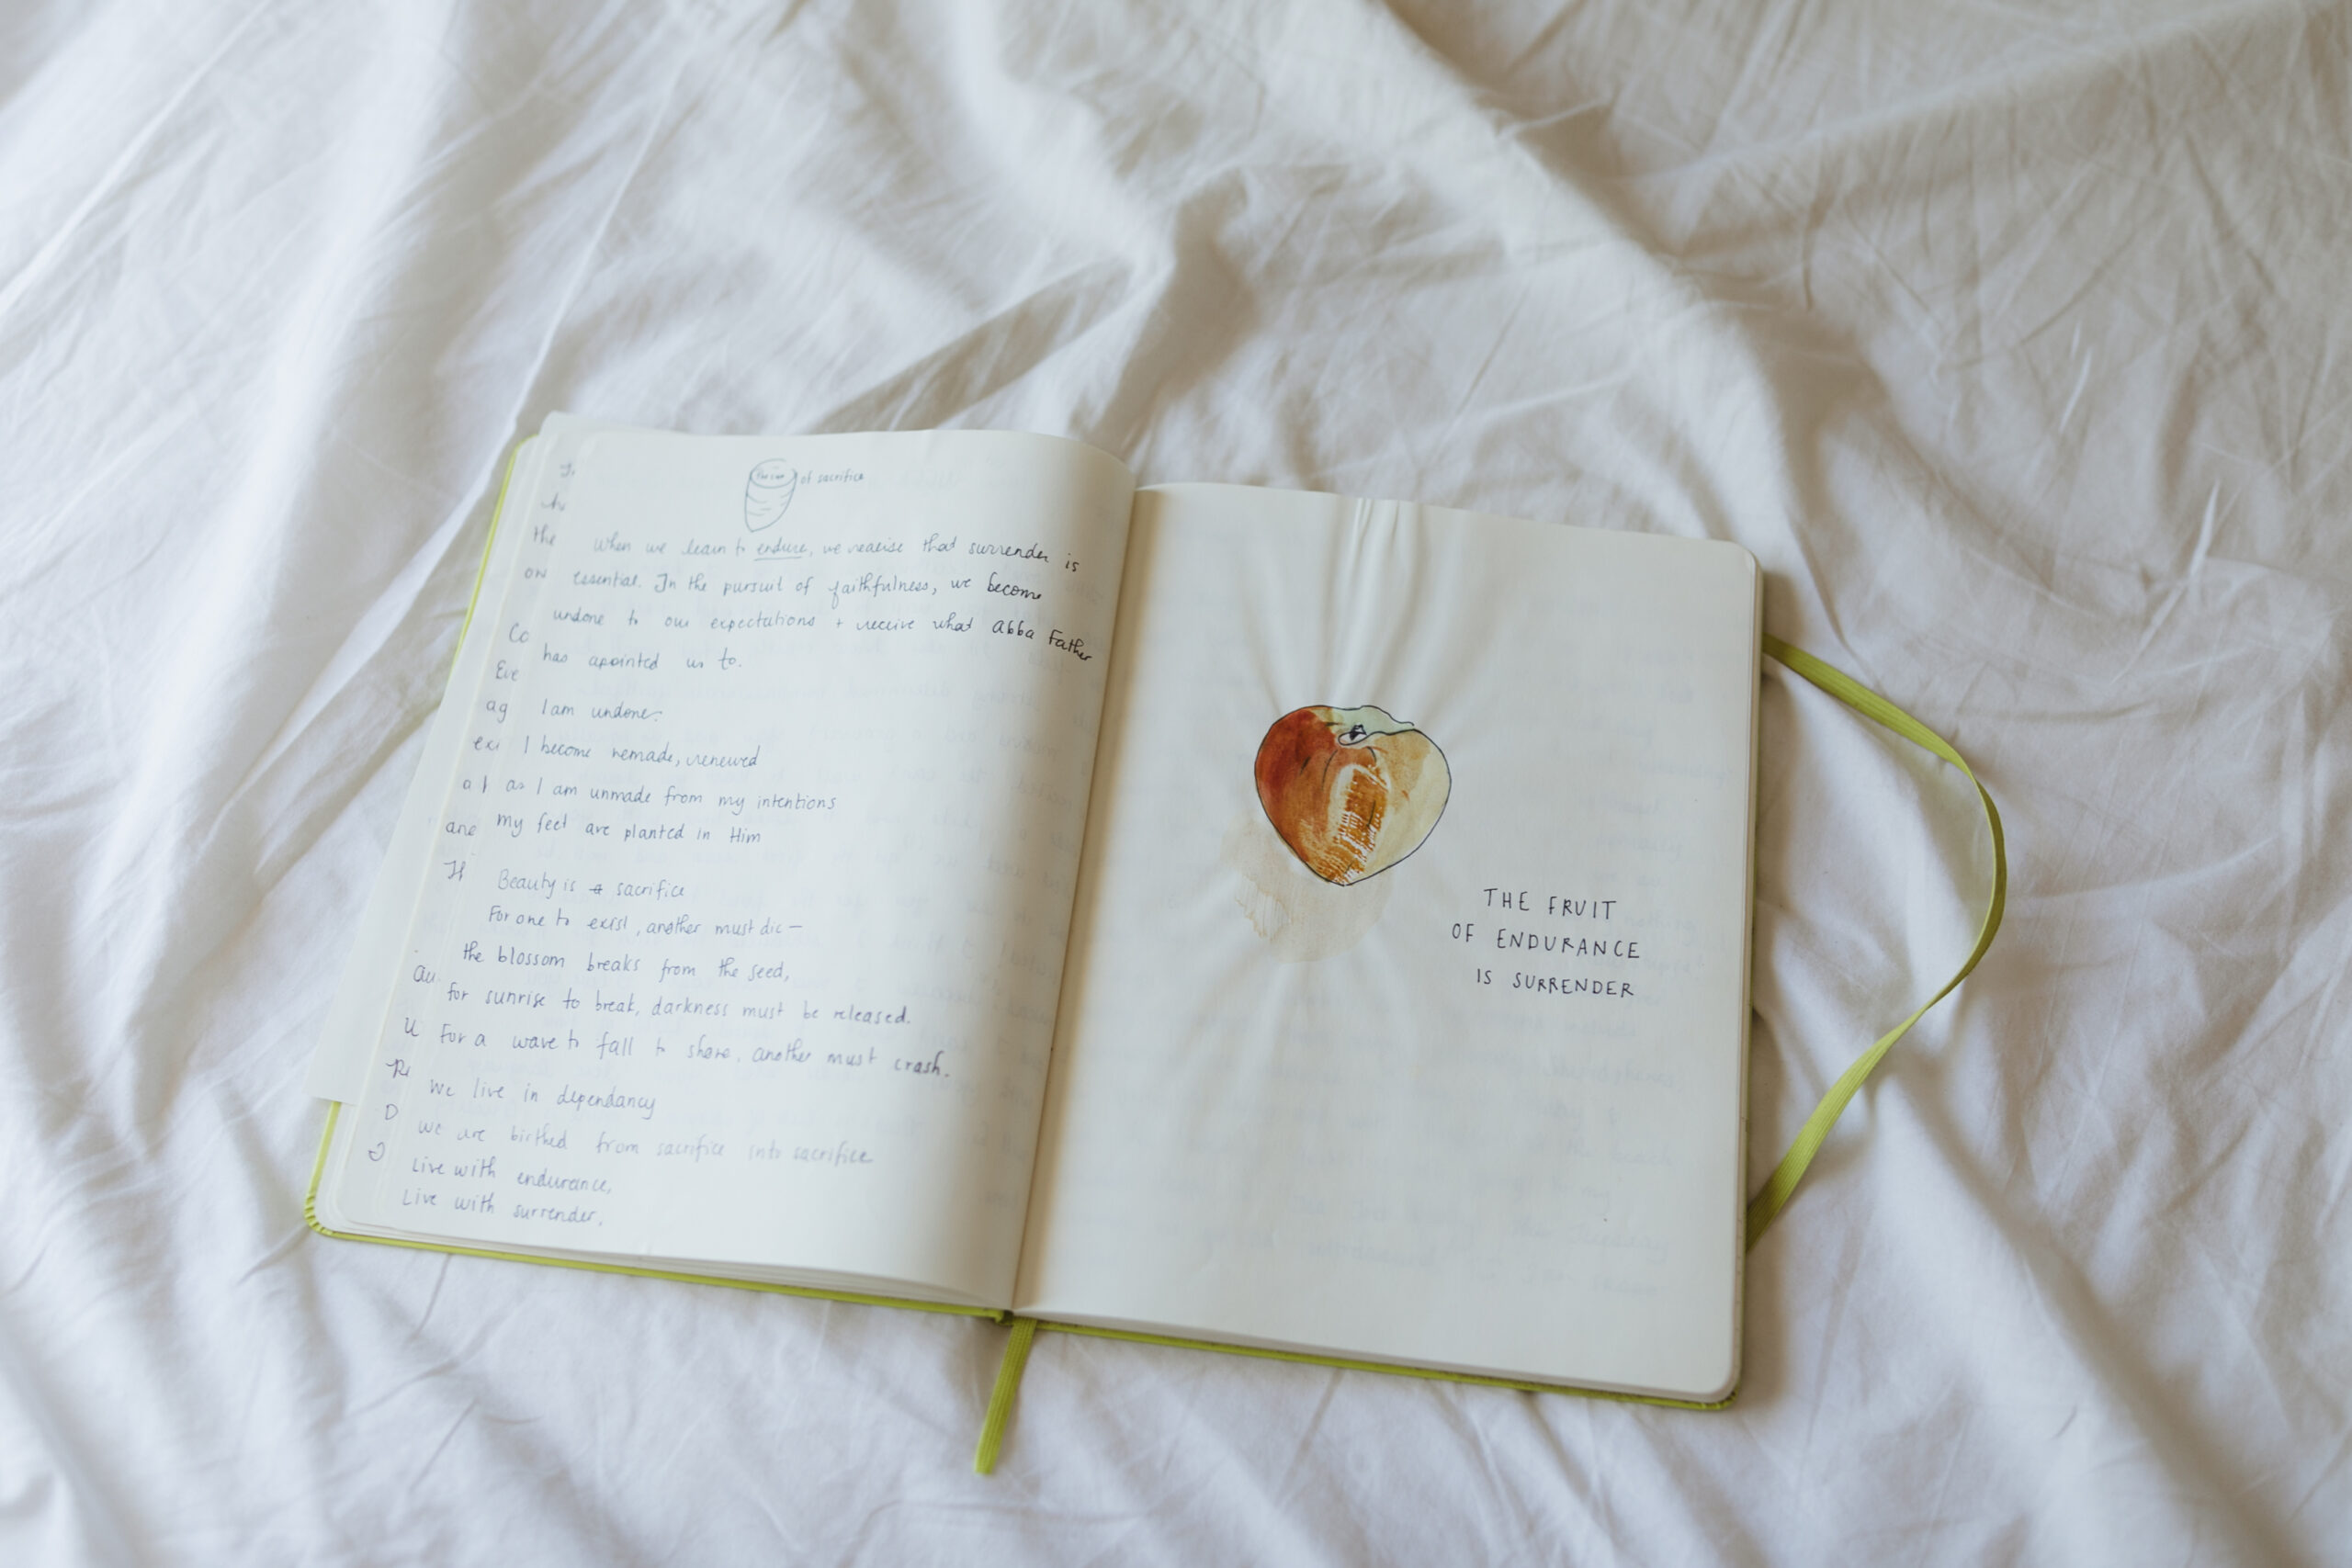 of sacrifice
When we learn to endure, we realise that surrender is
essential. In the pursuit of faithfulness, we become
undone to our expectations + receive what Abba Father
has apointed us to.
I am undone.
I become remade, renewed
as I am unmade from my intentions
my feet are planted in Him
Beauty is a sacrifice
For one to exist, another must die —
the blossom breaks from the seed,
for sunrise to break, darkness must be released.
For a wave to fall to shore, another must crash.
We live in dependancy
we are birthed from sacrifice into sacrifice
Live with endurance,
Live with surrender,
the
ow
Co
Eve
ag
exi
al
are
If
au
U
D
I
THE FRUIT
OF ENDURANCE
IS SURRENDER